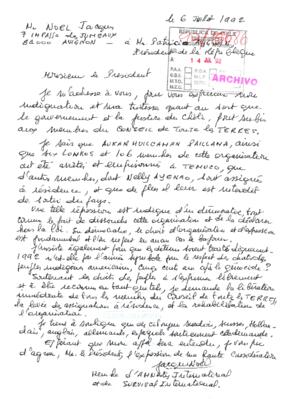 le 6 Juillet 1992
Mr NOEL Jacques
7 IMPASSE des
84000 AVIGNON - à Mr Patricio AYLWIN
Président de la République
14 JUL 92
ARCHIVO
Monsieur le Président
Je m'adresse à vous, pour vous exprimer mon
indignation et ma tristesse quant au sort que
le gouvernement et la justice du Chili, font subir
aux membres du CONSEIL de Toutes les TERRES.
Je sais que AUKAN HUILCAMAN PAILLAMA, ainsi
que membres de cette organisation
ont été arrêtés et emprisonnés à TEMUCO, que
d'autres membres, dont Nelly AYENAO, sont assignés
à résidence, et que de plus il leur est interdit
de sortir du pays.
Une telle répression est indigne d'une démocratie, tout
comme le fait de dissoudre cette organisation et de la déclarer
hors la loi. En démocratie, le droit d'organisation et d'expression
est fondamental et l'on respect
J'insiste également sur
1992 n'est-elle pas l'année pour le respect des droits des
peuples indigènes américains, cinq cents ans après le génocide ?
Soutenant ces droits de s'exprimer librement
et à être reconnu en tant que tels, je demande la libération
immédiate de tous les membres du Conseil de toutes les TERRES,
la levée de assignation à résidence, et la réhabilitation de
l'organisation.
Je tiens à souligner que des citoyens suédois, suisses, hollan-
dais, anglais, allemands,
Espérant que mon appel sera entendu, je vous prie
d'agréer, Mr le Président, l'expression de ma haute considération
Jacques Noël
Membre d'AMNESTY International
et de SURVIVAL International.